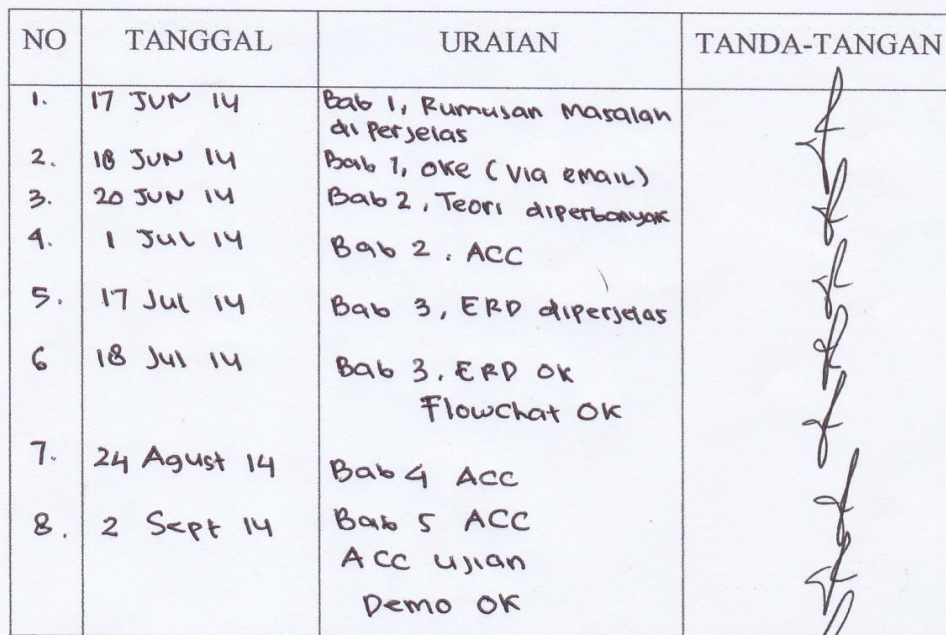 NO TANGGAL URAIAN TANDA-TANGAN
1. 17 JUN 14 Bab 1, Rumusan Masalah
diperjelas
2. 18 JUN 14 Bab 1, OKe (via email)
3. 20 JUN 14 Bab 2, Teori diperbanyak
4. 1 Jul 14 Bab 2. ACC
5. 17 Jul 14 Bab 3, ERD diperjelas
6 18 Jul 14 Bab 3. ERD OK
Flowchat OK
7. 24 Agust 14 Bab 4 ACC
8. 2 Sept 14 Bab 5 ACC
ACC ujian
Demo OK